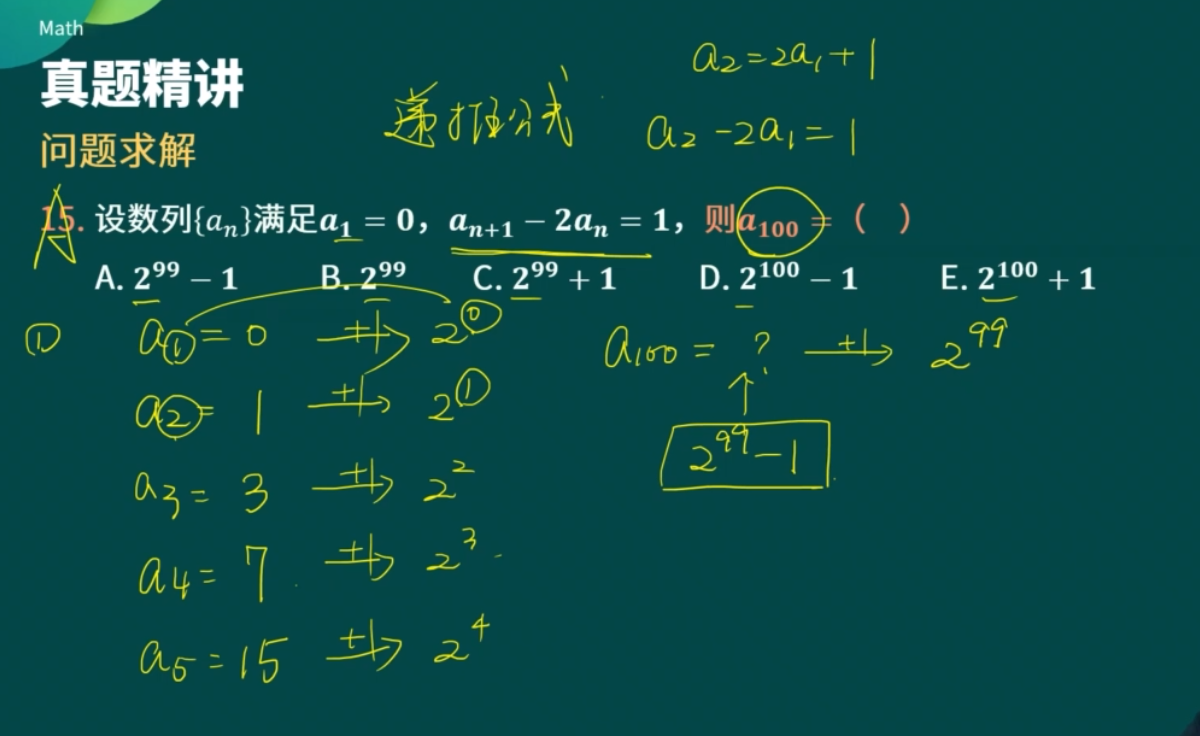 Math
真题精讲
问题求解
递推公式
a₂=2a₁+1
a₂-2a₁=1
A
15. 设数列{aₙ}满足a₁ = 0，aₙ₊₁ − 2aₙ = 1，则a₁₀₀ = （ ）
A. 2⁹⁹ − 1 B. 2⁹⁹ C. 2⁹⁹ + 1 D. 2¹⁰⁰ − 1 E. 2¹⁰⁰ + 1
① a₁=0 +1→ 2⁰
a₂=1 +1→ 2¹
a₃=3 +1→ 2²
a₄=7 +1→ 2³
a₅=15 +1→ 2⁴
a₁₀₀=? +1→ 2⁹⁹
↑
2⁹⁹-1